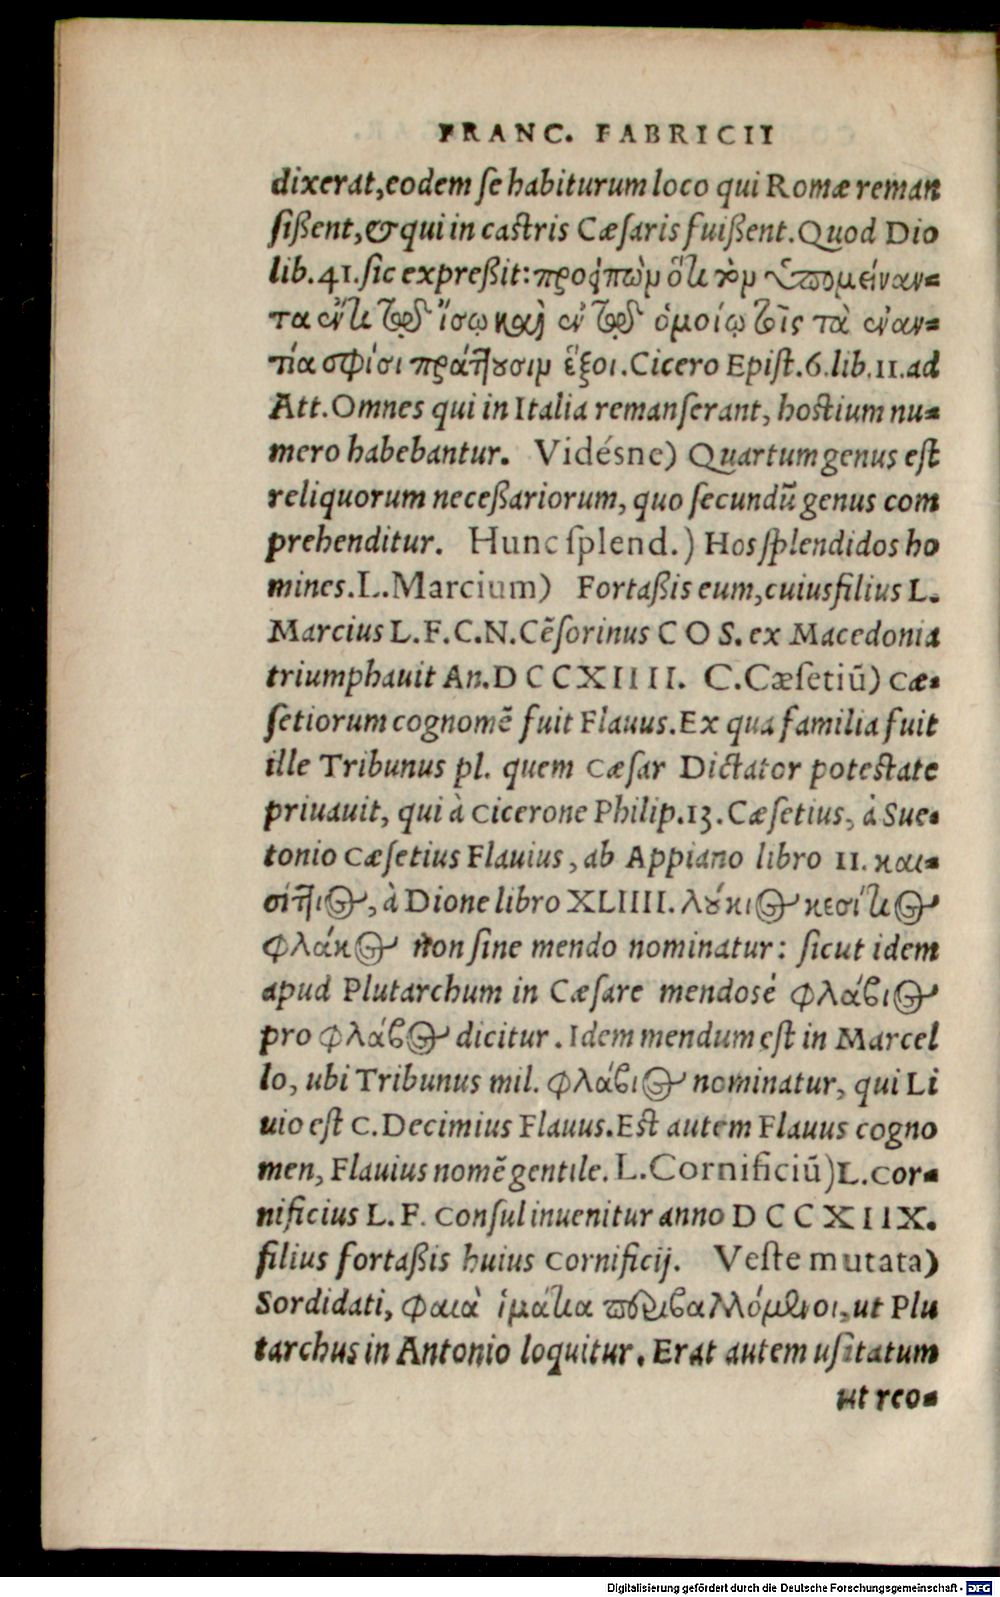 FRANC. FABRICII
dixerat, eodem se habiturum loco qui Romæ reman
sißent, & qui in castris Cæsaris fuißent. Quod Dio
lib. 41. sic expreßit: προειπὼν ὅτι τὸν ὑπομείναν-
τα ἔν τε τῷ ἴσῳ καὶ ἐν τῷ ὁμοίῳ τοῖς τὰ ἐναν-
τία σφίσι πράττουσιν ἕξοι. Cicero Epist. 6. lib. 11. ad
Att. Omnes qui in Italia remanserant, hostium nu-
mero habebantur. Vidésne) Quartum genus est
reliquorum neceßariorum, quo secundũ genus com
prehenditur. Hunc splend.) Hos splendidos ho
mines. L. Marcium) Fortaßis eum, cuius filius L.
Marcius L. F. C. N. Cẽsorinus COS. ex Macedonia
triumphauit An. DCCXIIII. C. Cæsetiũ) Cæ-
setiorum cognomẽ fuit Flauus. Ex qua familia fuit
ille Tribunus pl. quem Cæsar Dictator potestate
priuauit, qui à Cicerone Philip. 13. Cæsetius, à Sue-
tonio Cæsetius Flauius, ab Appiano libro 11. και-
σίτιος, à Dione libro XLIIII. λούκιος κεσίτιος
φλάκος non sine mendo nominatur: sicut idem
apud Plutarchum in Cæsare mendosè φλάβιος
pro φλάβος dicitur. Idem mendum est in Marcel
lo, ubi Tribunus mil. φλάβιος nominatur, qui Li
uio est C. Decimius Flauus. Est autem Flauus cogno
men, Flauius nomẽ gentile. L. Cornificiũ) L. Cor-
nificius L. F. Consul inuenitur anno DCCXIIX.
filius fortaßis huius Cornificij. Veste mutata)
Sordidati, φαιὰ ἱμάτια περιβαλλόμενοι, ut Plu
tarchus in Antonio loquitur. Erat autem usitatum
ut reo-
Digitalisierung gefördert durch die Deutsche Forschungsgemeinschaft - DFG